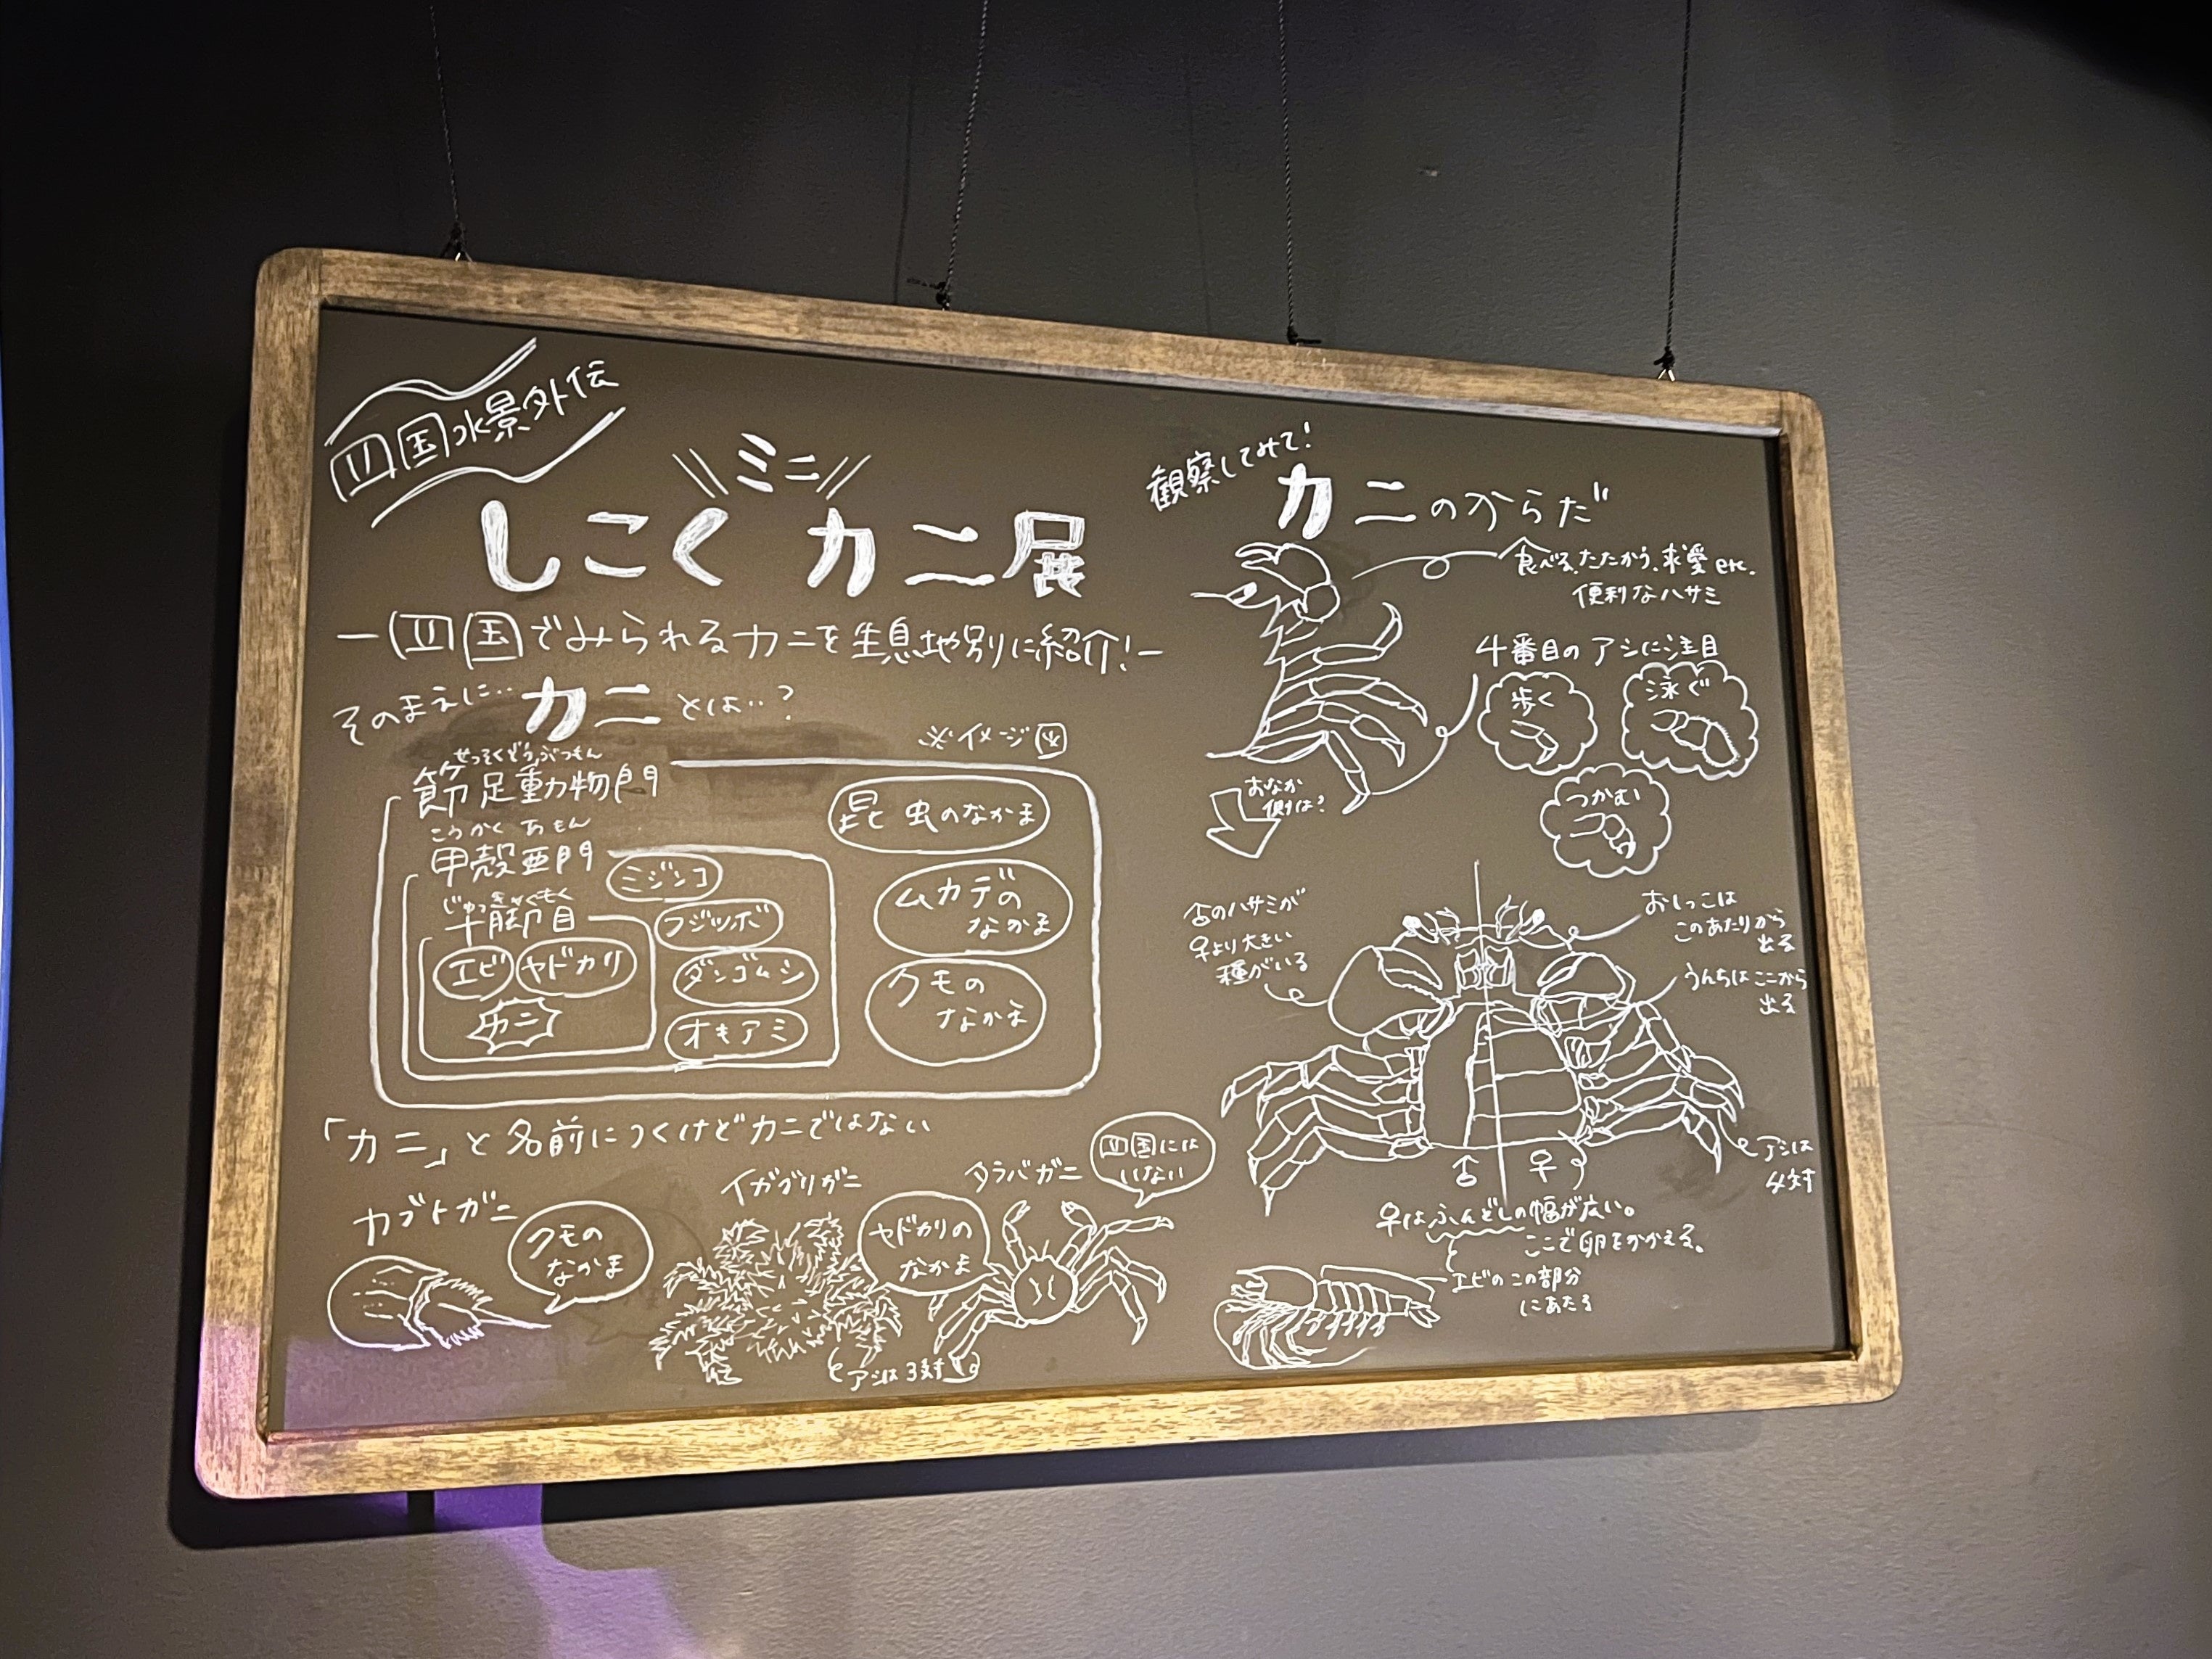 四国水景外伝
ミニ
しこくカニ展
ー四国でみられるカニを生息地別に紹介!ー
そのまえに‥カニとは‥?
※イメージ図
せっそくどうぶつもん
節足動物門
昆虫のなかま
ムカデの
なかま
クモの
なかま
こうかくあもん
甲殻亜門
ミジンコ
フジツボ
ダンゴムシ
オキアミ
じゅっきゃくもく
十脚目
エビ
ヤドカリ
カニ
「カニ」と名前につくけどカニではない
カブトガニ
クモの
なかま
イガグリガニ
ヤドカリの
なかま
タラバガニ
四国には
いない
アシは3対
観察してみて!
カニのからだ
食べる、たたかう、求愛etc.
便利なハサミ
4番目のアシに注目
歩く
泳ぐ
つかむ
おなか
側は?
♂のハサミが
♀より大きい
種がいる
おしっこは
このあたりから
出る
うんちはここから
出る
アシは
4対
♂
♀
♀はふんどしの幅が広い。
ここで卵をかかえる。
エビのこの部分
にあたる